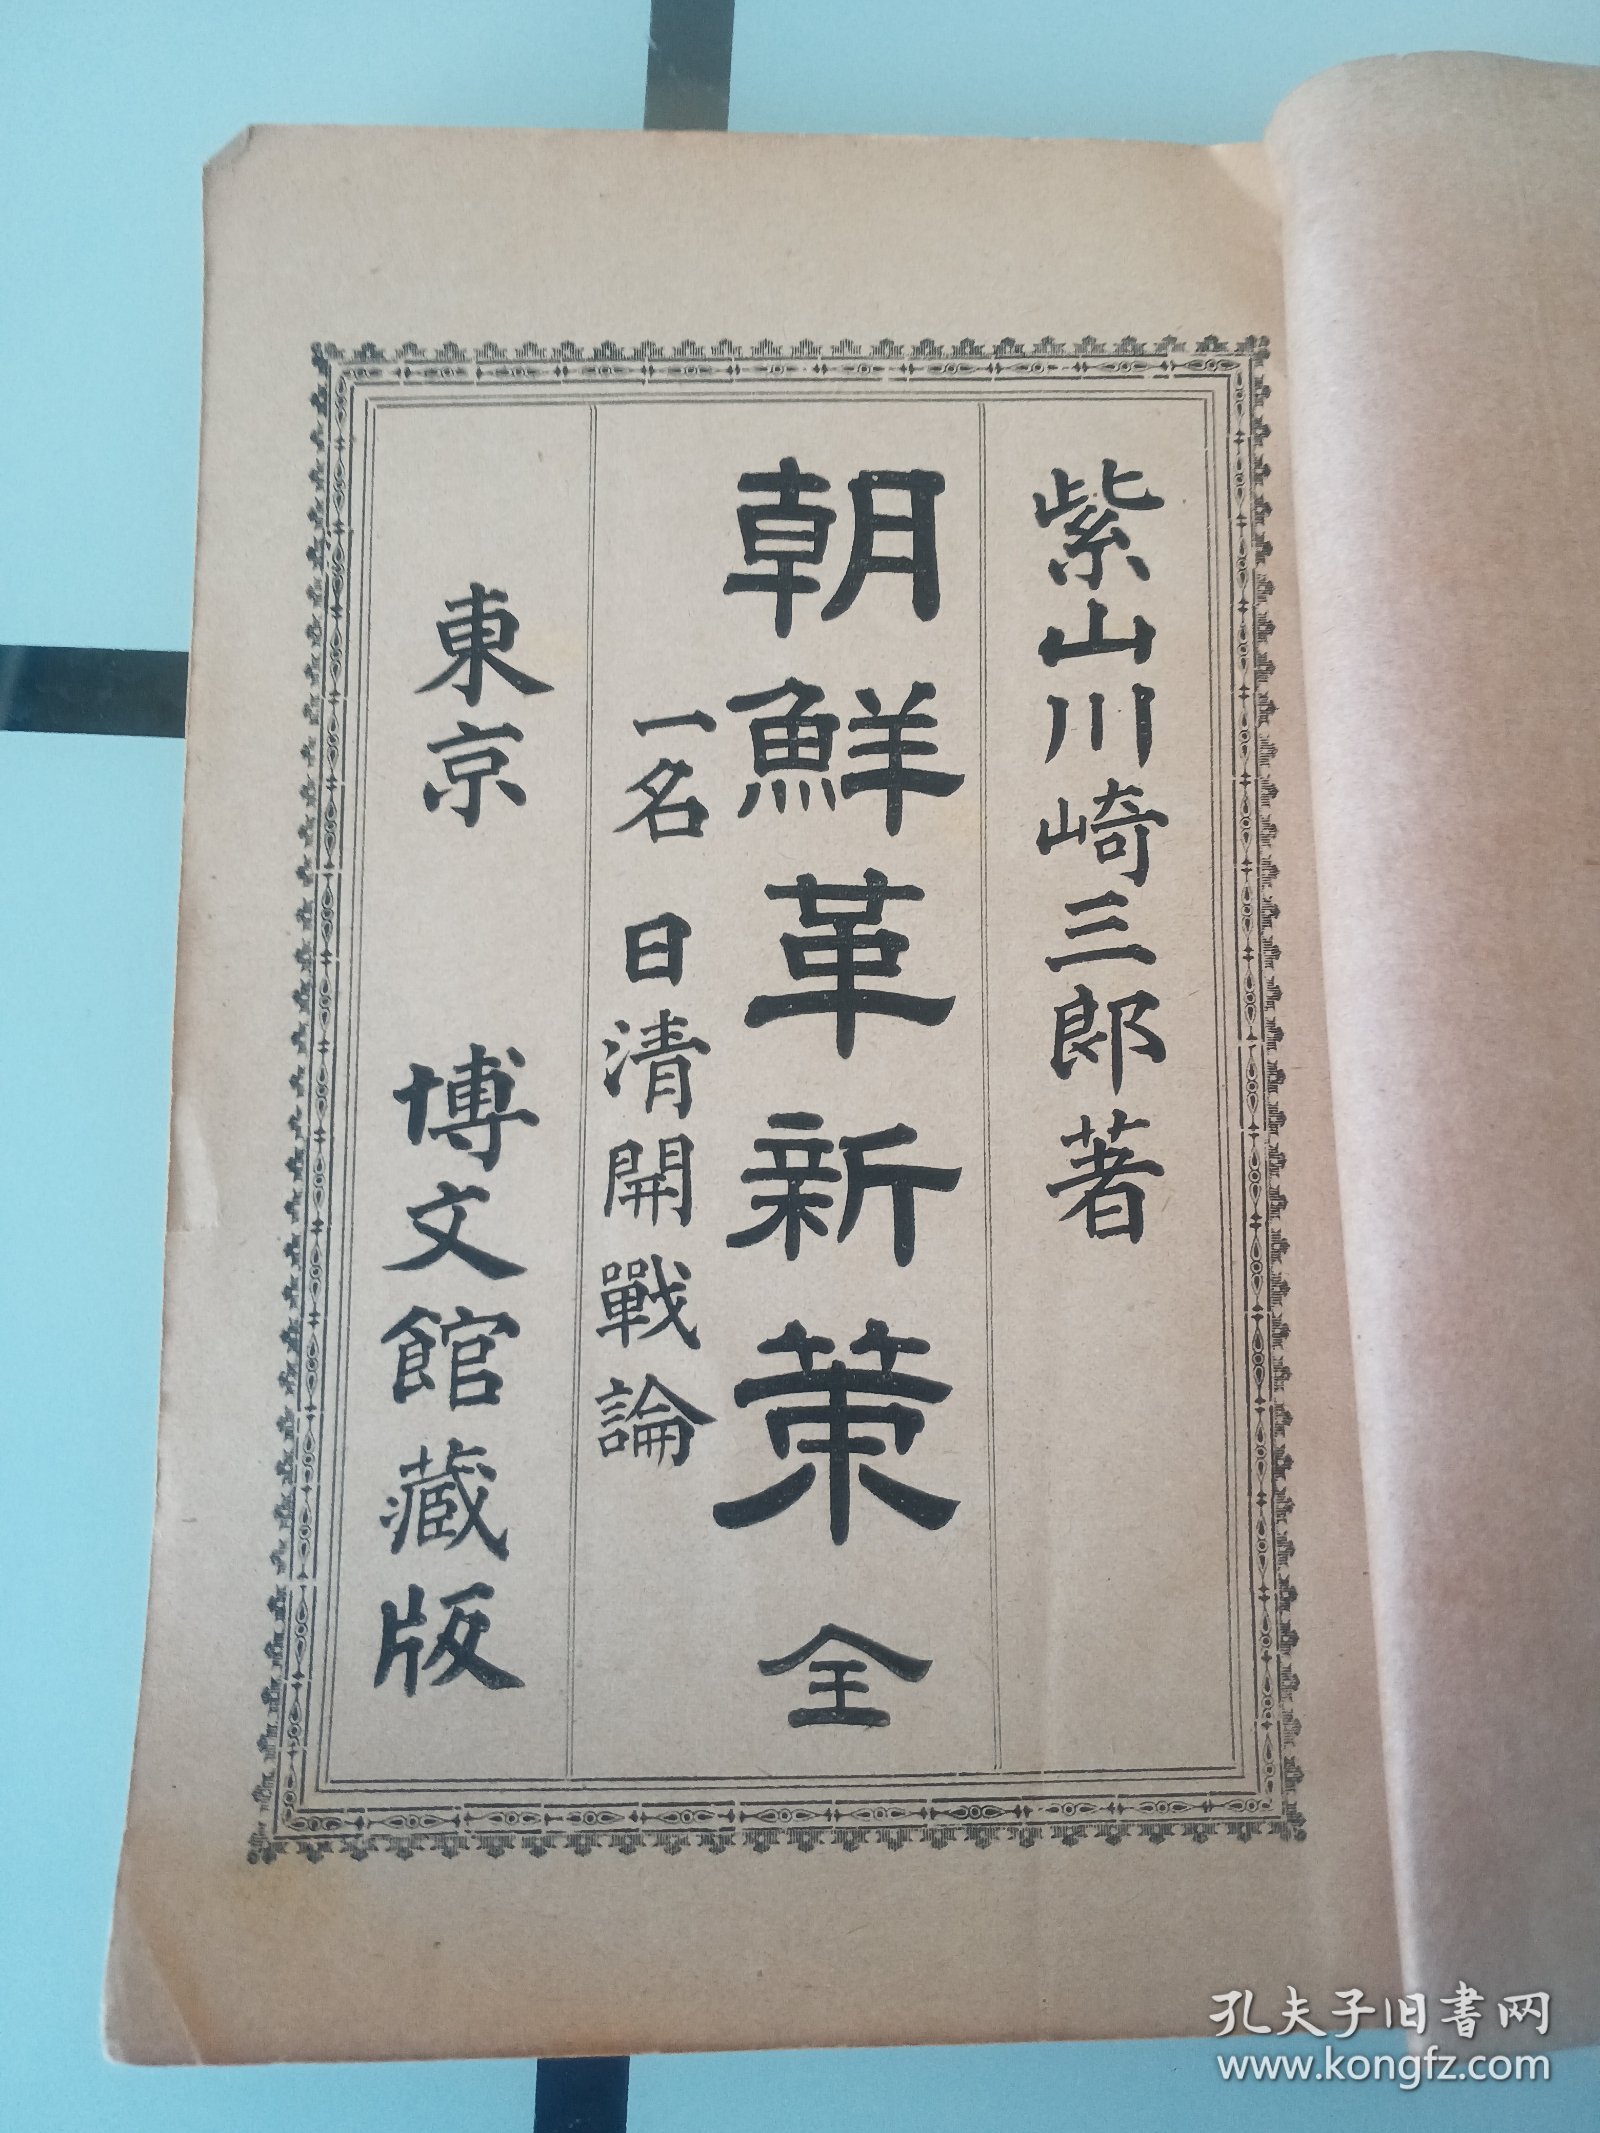 紫山川崎三郎著
朝鮮革新策 全
一名 日清開戰論
東京 博文館藏版
孔夫子旧书网
www.kongfz.com